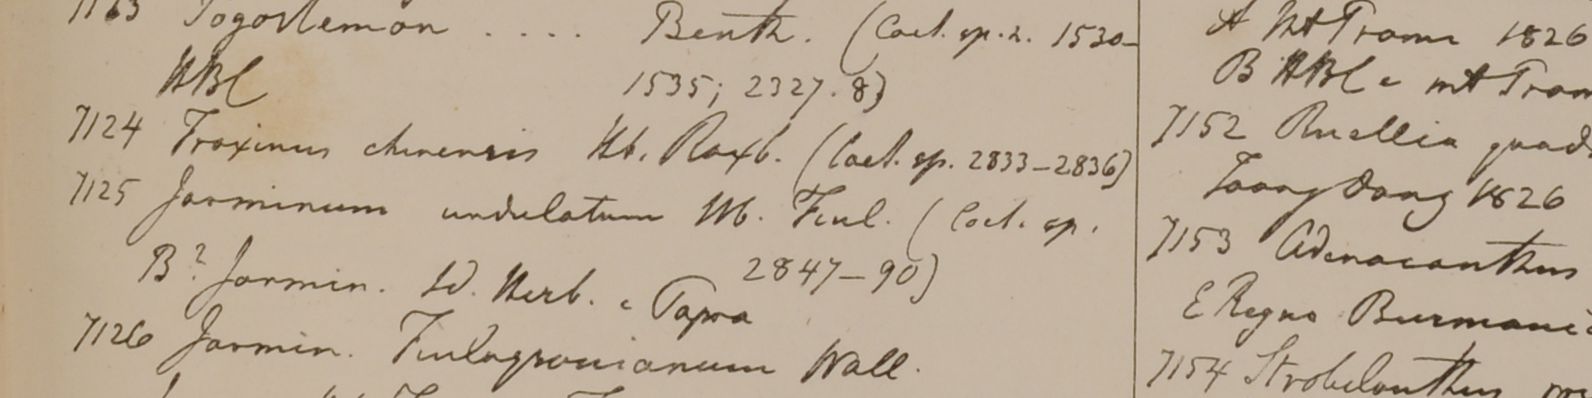 Pogostemon .... Benth. (Coel. sp. 2. 1530-
HBC 1535; 2327.8)
7124 Fraxinus chinensis Hb. Roxb. (Coel. sp. 2833-2836)
7125 Jasminum undulatum Hb. Finl. (Coel. sp.
B? Jasmin. Hd. Herb. e Tapoa 2847-90)
7126 Jasmin. Finlaysonianum Wall.
A Mt Trome 1826
B HBC e mt Trom
7152 Ruellia quad
Toong Dong 1826
7153 Adenacanthus
E Regno Burmani
7154 Strobilanthus